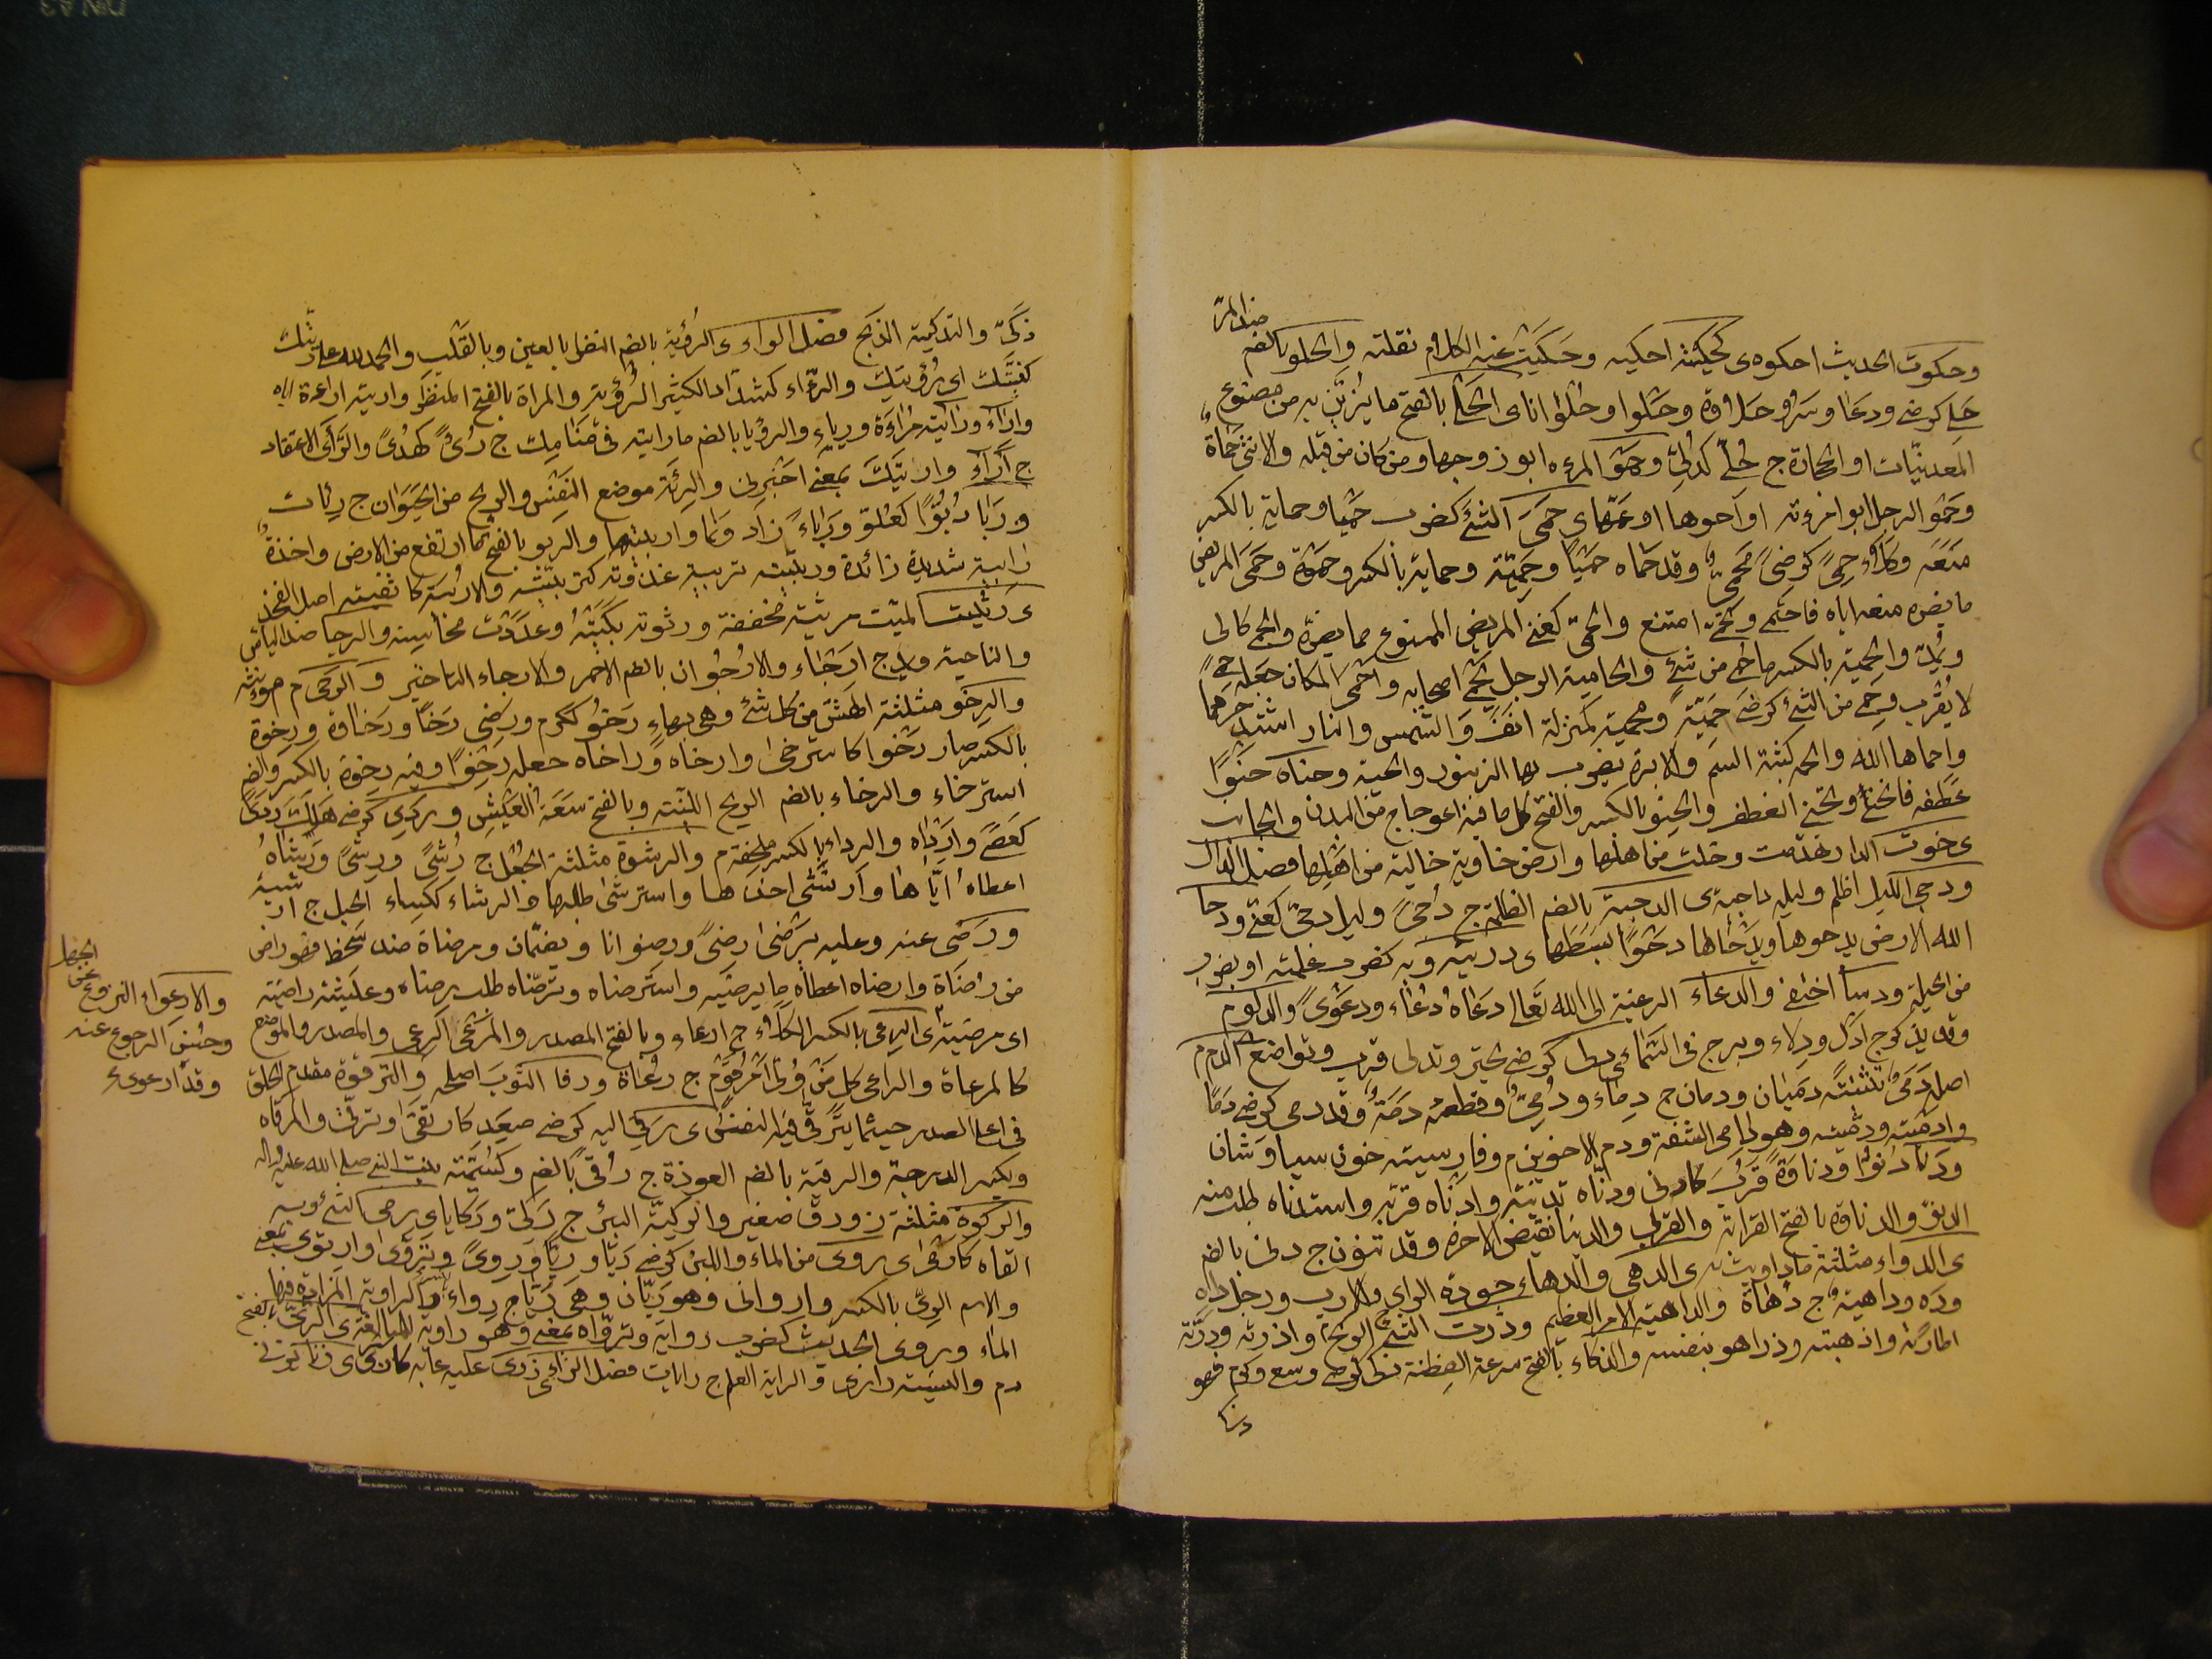 وحكوت الحديث احكوه ى كحكيته احكيه وحكيت عنه الكلام نقلته والحلو بالضم
ضد المرّ
حلى كرضى ودعا وسرو حلاوة وحلوا وحلوانا ى الحلى بالفتح ما يزيّن به من مصنوع
المعدنيّات او الحجارة ج حُلّى كدلىّ وحمو المرءه ابو زوجها ومن كان من قبله والانثى حماة
وحمو الرجل ابو امرءته او اخوها او عمّها ى حمى الشئ كضرب حميا وحماية بالكسر
منعه وكلاء حمىً كرضىً محمىّ وقد حماه حميا وحمية وحماية بالكسر وحموة وحمى المريض
ما يضره منعه اياه فاحتمى وتحمّى امتنع والحمىّ كغنى المريض الممنوع مما يضره والحمى كالى
ويمدّ والحمية بالكسر ما حمى من شئ والحامية الرجل يحمى اصحابه واحمى المكان جعله حمىً
لا يقرب وحمى من الشئ كرضى حميّة ومحمية كمنزلة انف والشمس والنار اشتد حرهما
واحماها الله والحمة كثبة السم والابرة يضرب بها الزنبور والحية وحناه حنوًا
عطفه فانحنى وتحنّى انعطف والحنو بالكسر والفتح كل ما فيه اعوجاج من البدن والجانب
ى خوت الدار تهدّمت وخلت من اهلها وارض خاوية خالية من اهلها فصل الدال
ودجى الليل اظلم وليلة داجية ى الدجية بالضم الظلمة ج دجىً وليل دجىّ كغنى ودحا
الله الارض يدحوها ويدحاها دحوًا بسطها ى دريته وبه كضرب علمته او بضرب
من الحيلة ودسا اختفى والدعاء الرغبة الى الله تعالى دعاه دعاء ودعوىً والدلو م
وقد يذكر ج ادل ودلاء وبرج فى السماء ى دلى كرضى تحيّر وتدلى قرب وتواضع الدم م
اصله دمى تثنيته دميان ودمان ج دماء ودمىّ وقطعته دمة وقد دمى كرضى دمًا
وادميته ودمّيته وهو دامى الشفة ودم الاخوين م وفارسيته خون سياوشان
ودنا دنوّا ودناوة قرب كادنى ودنّاه تدنية وادناه قرّبه واستدناه طلب منه
الدنوّ والدناوة بالفتح القرابة والقربى والدنيا نقيض الاخرة وقد تنوّن ج دنى بالضم
ى الدواء مثلثة ما داويت به ى الدهى والدهاء جودة الراى والارب ورجل داه
وده وداهية ج دهاة والداهية الامر العظيم وذرت الشئ الريح واذرته وذرّته
اطارته واذهبته وذرا هو بنفسه والذكاء بالفتح سرعة الفطنة ذكى كرضى وسعى وكرم فهو
ذكىّ
ذكىّ والتذكية الذبح فصل الراء ى الرؤية بالضم النظر بالعين وبالقلب والحمد لله على
كنيّتك اى رؤيتك والرءّاء كشدّاد الكثير الرؤية والمراة بالفتح المنظر واريته اراءة اياه
واراء وراءيته مراءاة ورياء والرؤيا بالضم ما رايته فى منامك ج رؤىً كهدىً والراى الاعتقاد
ج آراء واريتك بمعنى اخبرنى والرئة موضع النفس والريح من الحيوان ج رئات
و ربا ربوًّا كعلوّ ورباءً زاد ونما واربيتها والربو بالفتح ما ارتفع من الارض واخذة
رابية شديدة زائدة وربّيته تربية غذوته كتربّيته والاربية كاثفية اصل الفخذ
ى رثيت الميت مرثية مخففة ورثوته بكيته وعددت محاسنه والرجا ضد الياس
والناحية ويمد ج ارجاء والارجوان بالضم الاحمر والارجاء التاخير و الرحى م مونثة
والرخو مثلثة الهش من كل شئ وهى بهاء رخو ككرم ورضى رخًا ورخاوة ورخوة
بالكسر صار رخوا كاسترخى وارخاه وراخاه جعله رخوًا وفيه رخوة بالكسر والضم
استرخاء والرخاء بالضم الريح اللينة وبالفتح سعة العيش و ردى كرضى هلك ردىً
كعصًى وارداه والرداء بالكسر ملحفة م والرشوة مثلثة الجعل ج رُشىً ورِشىً ورشاه
اعطاه ايّاها وارتشى اخذها واسترشى طلبها والرشاء ككساء الحبل ج ارشية
ورضى عنه وعليه يرضى رضىً ورضوانا ويضمّان ومرضاة ضد سخط فهو راض
من رضاة وارضاه اعطاه ما يرضيه واسترضاه وترضّاه طلب رضاه وعيشة راضية
اى مرضية ى الرعى بالكسر الكلاء ج ارعاء وبالفتح المصدر والمرعى الرعى والمصدر والموضع
كالمرعاة والراعى كل من ولى امر قوم ج رعاة ورفا الثوب اصلحه والترقوة مقدم الحلق
فى اعلى الصدر حيثما يترقى فيه النفس ى رقى اليه كرضى صعد كارتقى وترقّى والمرقاة
ويكسر الدرجة والرقية بالضم العوذة ج رُقىً بالضم وكسميّة بنت النبى صلى الله عليه واله
والركوة مثلثة زورق صغير والركيّة البئر ج ركىّ وركايا ى رمى الشئ وبه
القاه كارمى ى روى من الماء واللبن كرضى ريّا وريّا وروىً وتروّى وارتوى بمعنى
والاسم الرىّ بالكسر واروانى وهو ريّان وهى ريّا ج رواء والراوية المزادة فيها
الماء وروى الحديث كضرب رواية وتروّاه بمعنى وهو راوية للمبالغة ى الرىّ بالفتح
دم والنسبة رازى و الراية العلم ج رايات فصل الزاى ى زرى عليه عابه
الجهل
والارعواء النزوع عن
وحسن الرجوع عنه
وقد ارعوى